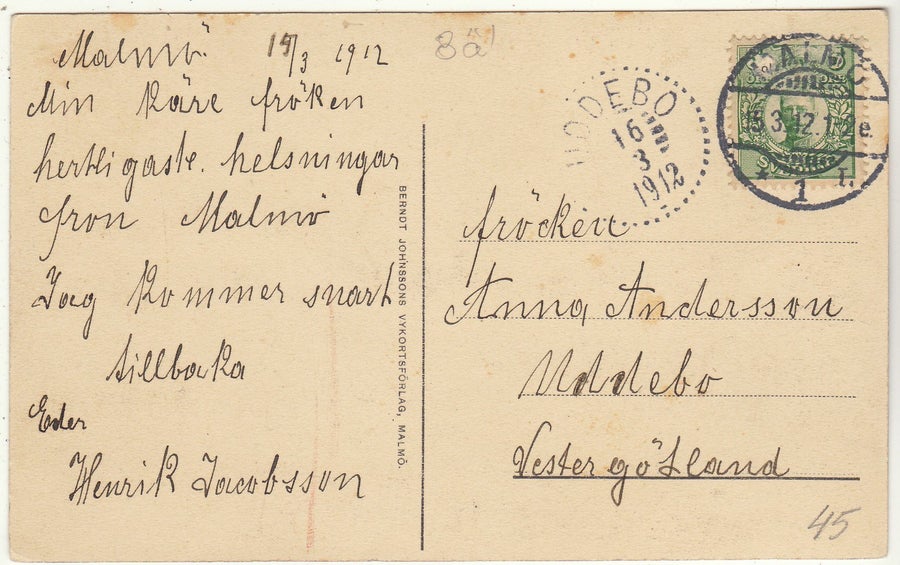 Malmö 15/3 1912
Min käre fröken
hertligaste. helsningar
fron Malmö
Jag kommer snart
tillbaka
Eder
Henrik Jacobsson
BERNDT JOHNSSONS VYKORTSFÖRLAG, MALMÖ.
8ä
UDDEBO
16
3
1912
MALMÖ
15.3.12.1-2e.
1
fröcken
Anna Andersson
Uddebo
Vestergötland
45